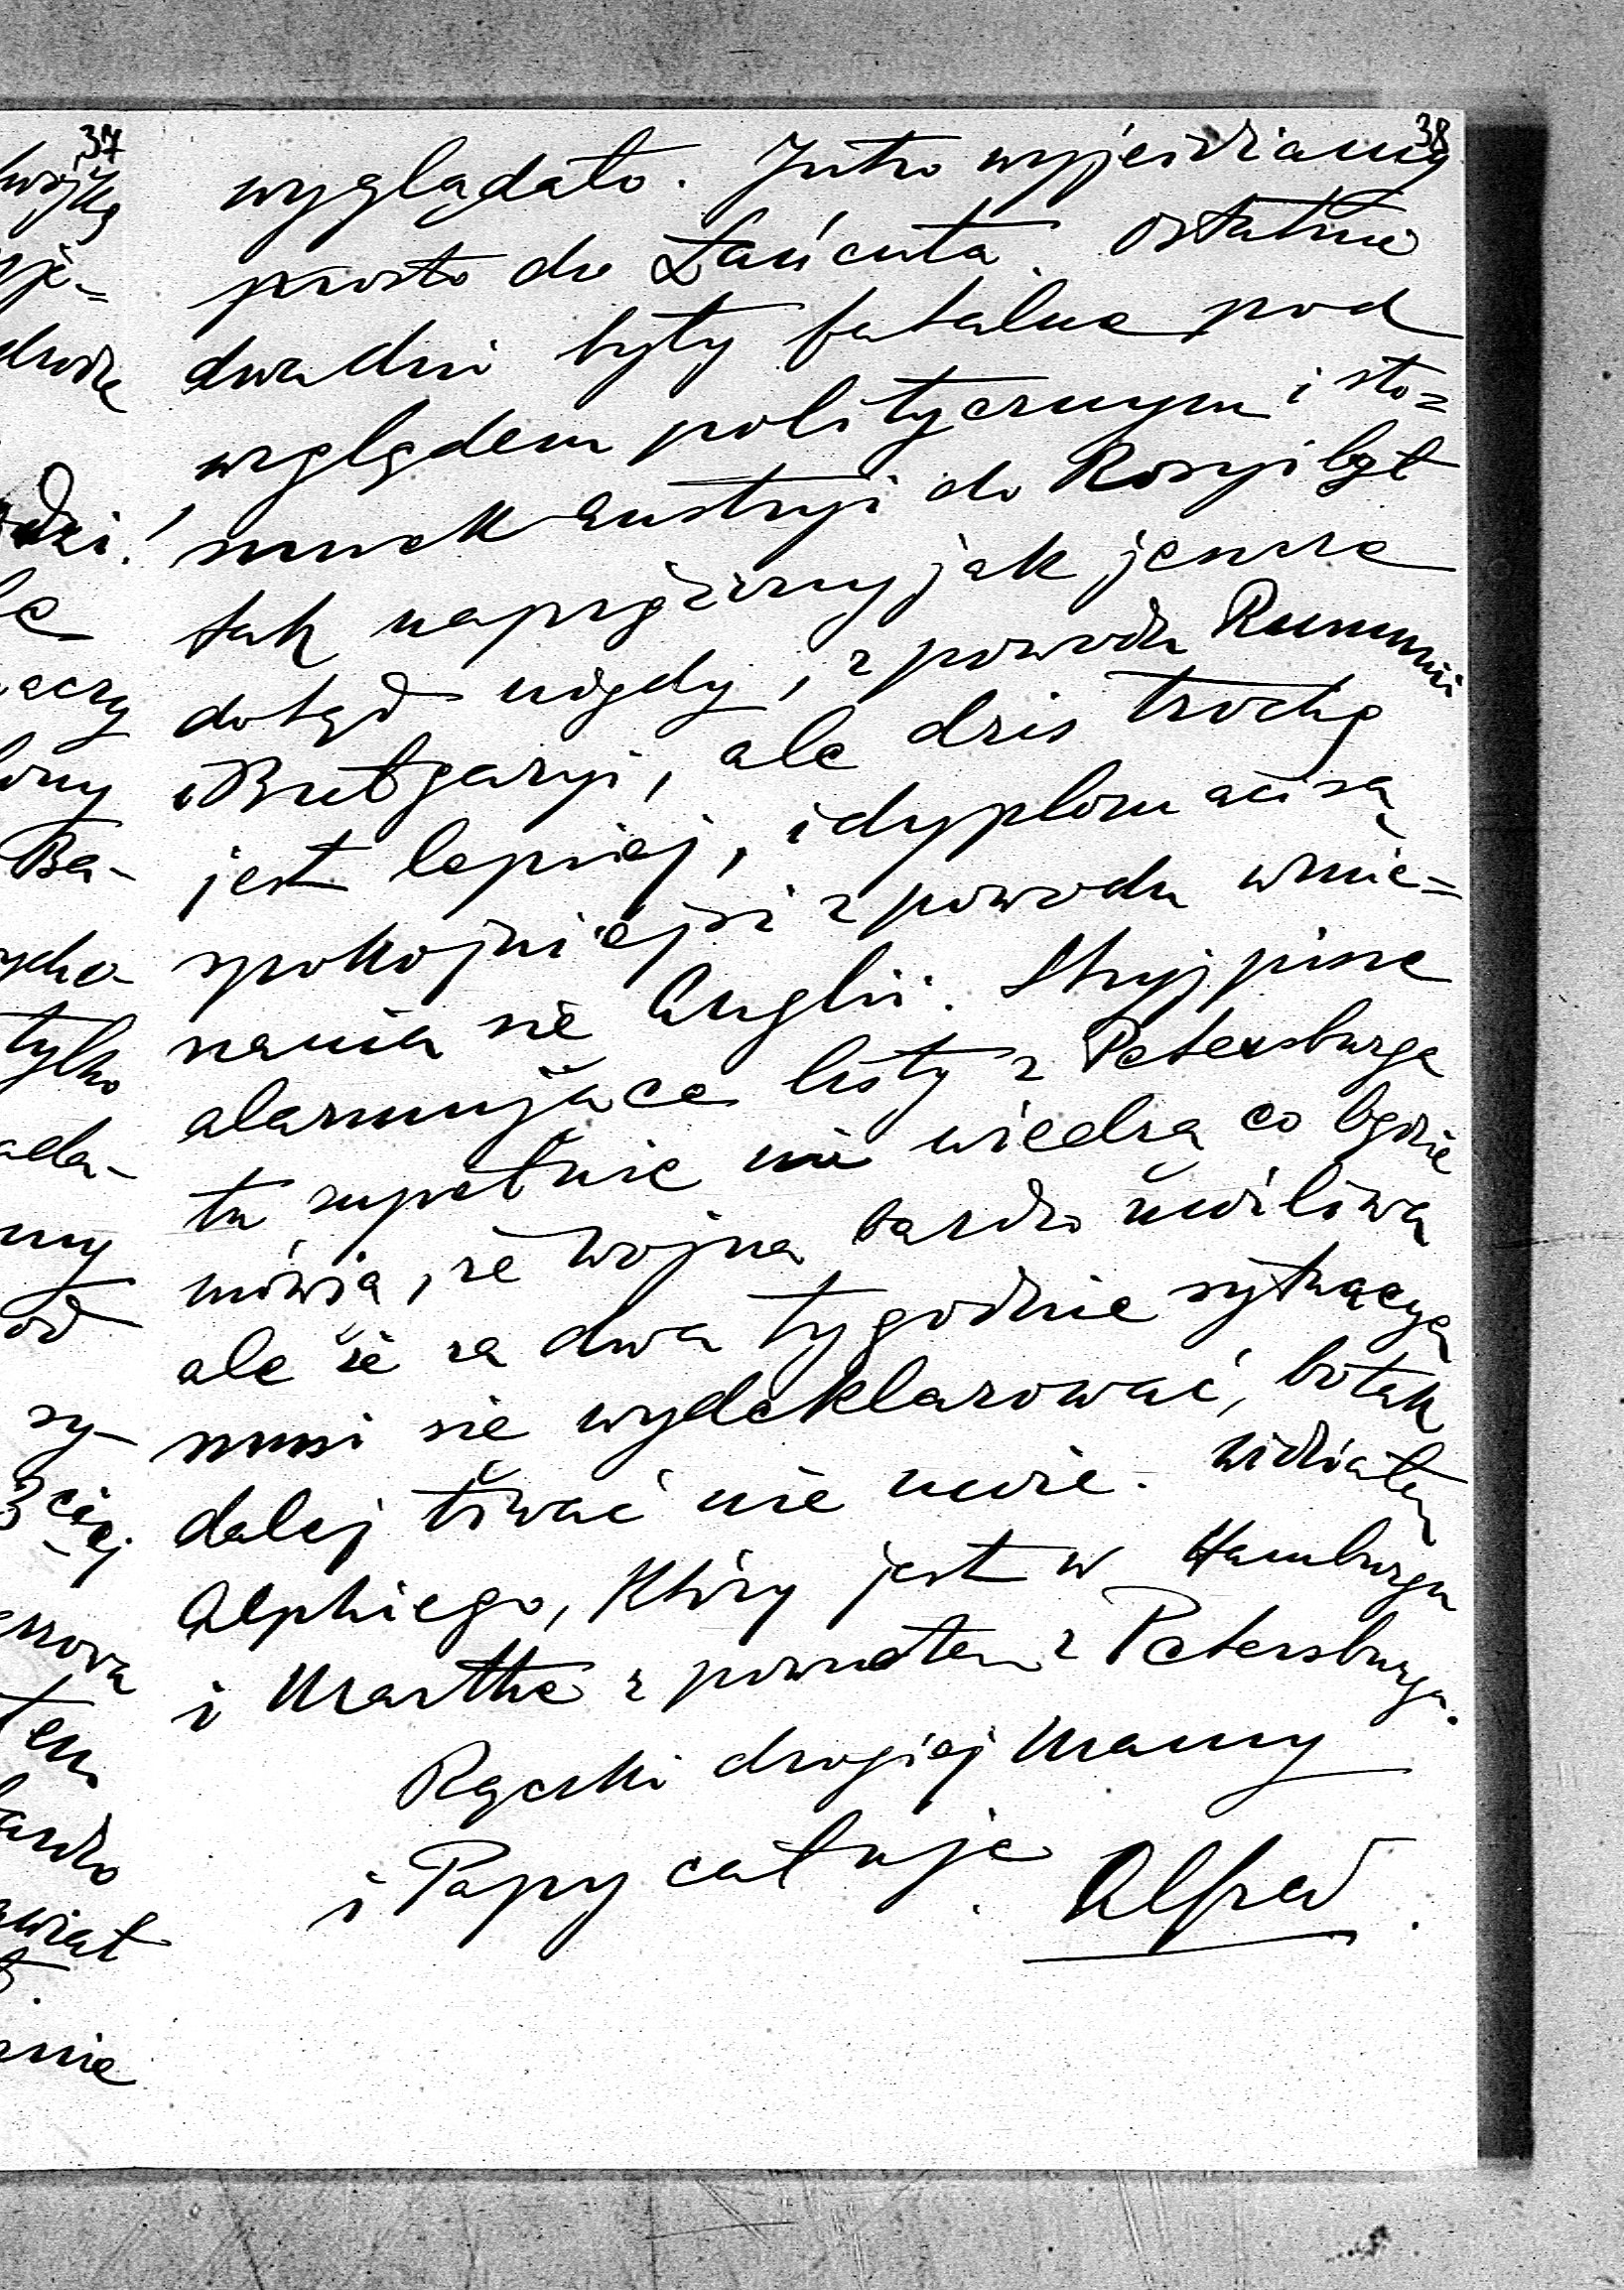 37
38
wyglądało. Jutro wyjeżdżamy
prosto do Łańcuta. Ostatnie
dwa dni były fatalne pod
względem politycznym i sto=
sunek Austryi do Rosyi był
tak naprężony jak jeszcze
dotąd nigdy, z powodu Rumunii
i Bułgaryi, ale dziś trochę
jest lepiej, i dyplomaci są
spokojniejsi z powodu wmie=
szania się Anglii. Stryj pisze
alarmujące listy z Petersburga
tu zupełnie nie wiedzą co będzie
mówią, że wojna bardzo możliwa
ale że za dwa tygodnie sytuacya
musi się wydeklarować, bo tak
dalej trwać nie może. Widziałem
który jest w Hamburgu
i z powrotem z Petersburga.
Rączki drogiej Mamy
i Papy całuję. Alfred.
wojkę
yje=
drodze
dzi!
le
aczy
Ba-
tylko
ada-
my
od
sy-
3ciej
tem
bardzo
anie